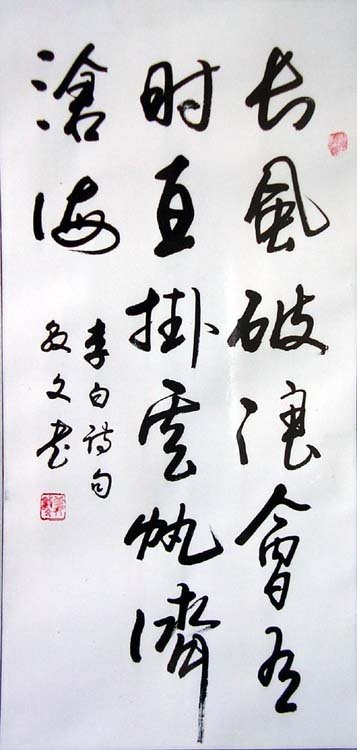 长風破浪會有
时直掛雲帆濟
滄海
李白诗句
文书